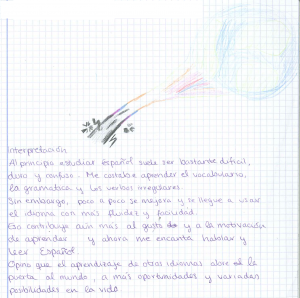 Interpretación
Al principio estudiar español suele ser bastante difícil,
duro y confuso. Me costaba aprender el vocabulario,
la gramática y los verbos irregulares.
Sin embargo, poco a poco se mejora y se llegue a usar
el idioma con más fluidez y facilidad.
contribuye aún más al gusto y a la motivación
de aprender y ahora me encanta hablar y
leer Español.
Opino que el aprendizaje de otros idiomas abre la
puerta al mundo, a más oportunidades y variadas
posibilidades en la vida.